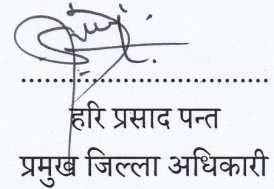 हरि प्रसाद पन्त
प्रमुख जिल्ला अधिकारी